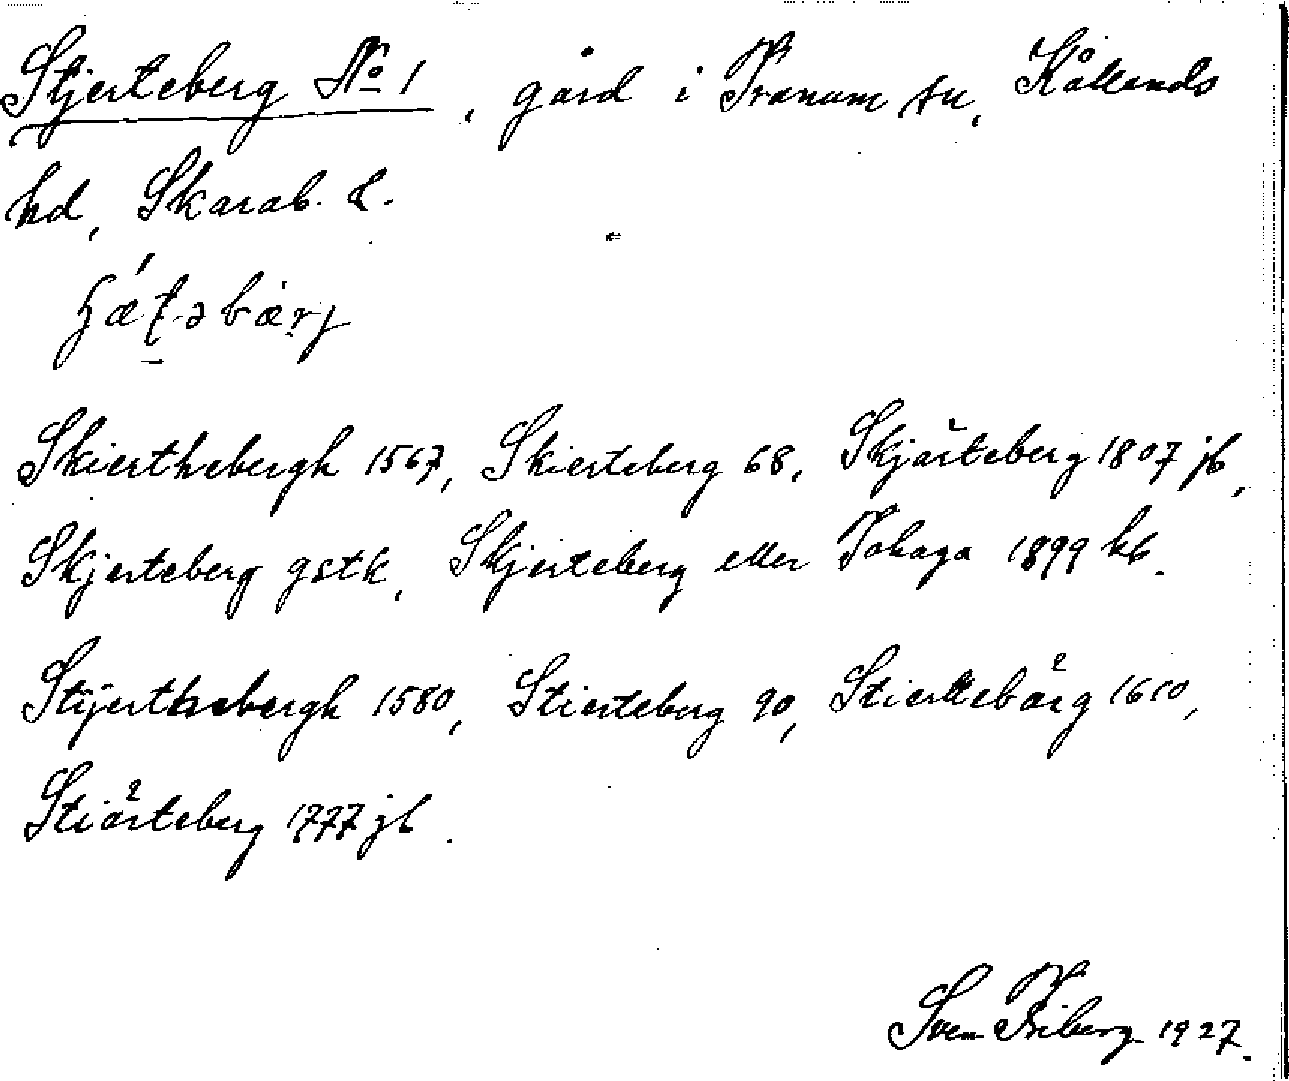 Stjerteberg No 1, gård i Tranum sn, Kållands
hd, Skarab. l.
Skierthebergh 1567, Skierteberg 68, Skjärteberg 1807 jb,
Skjerteberg gstk, Skjerteberg eller Tokaga 1899 kb.
Stijerthebergh 1580, Stierteberg 90, Stiertebärg 1610,
Stiärteberg 1777 jb.
Sven Friberg 1927.